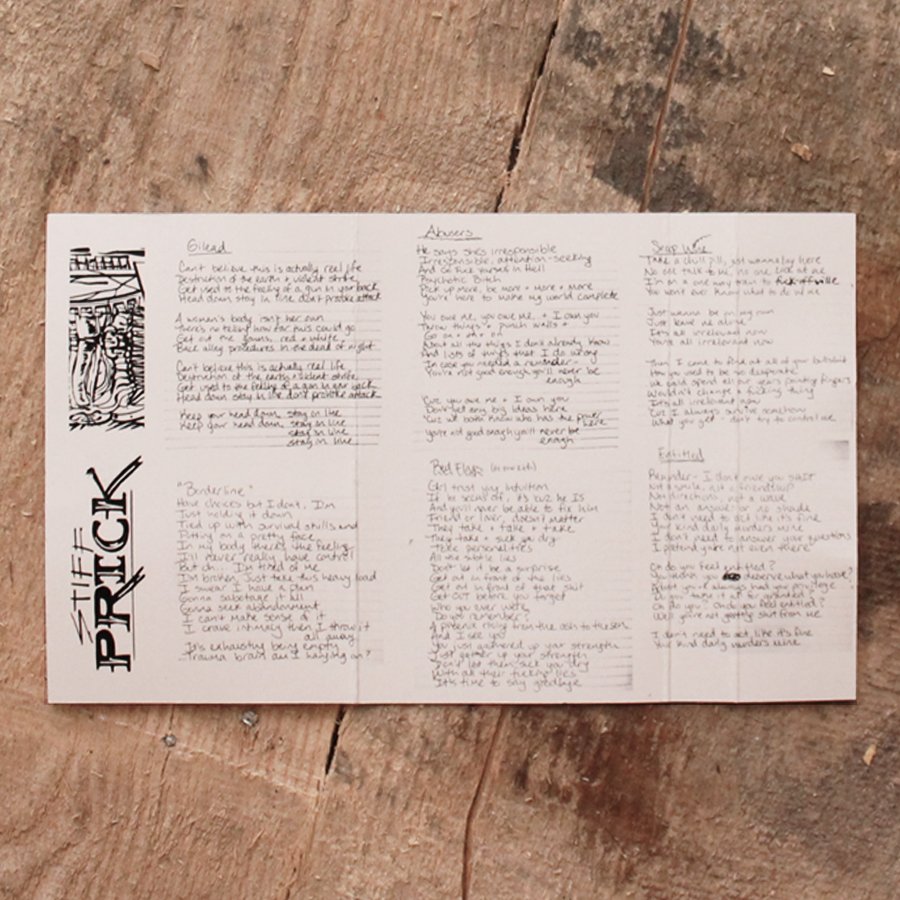 STIFF
PRICK
Gilead
Can't believe this is actually reel life
Destruction of the earth + violent strife
Get used to the feeling of a gun in your back
Head down stay in line don't provoke attack
A women's body isn't her own
There's no telling how far this could go
Get out the gowns, red + white
Back alley procedures in the dead of night
Can't believe this is actually reel life
Destruction of the earth + violent strife
Get used to the feeling of a gun in your back
Head down stay in line don't provoke attack
Keep your head down stay in line
Keep your head down stay in line
stay in line
stay in line
"Borderline"
Have choices but I don't. I'm
Just holding it down
Tied up with survival skulls and
Putting on a pretty face
In my body there's this feeling
I'll never really have control
But oh... I'm tired of me
I'm broken, Just take this heavy load
I swear I have a plan
Gonna sabotage it all
Gonna seek abandonment
I can't make sense of it
I crave intimacy then I throw it
all away
It's exhausting being empty
...Trauma brain am I hanging on?
Abusers
He says she's irresponsible
Irresponsible attention-seeking
And Go Fuck Yourself in Hell
Psychotic Bitch
Pick up more, be more + more + more
You're here to make my world complete
You owe me, you owe me, + I own you
Throw things + punch walls +
Go on + on + on
About all the things I don't already know
And lots of things that I do wrong
In case you needed a reminder-
You're not good enough you'll never be
enough
'Cuz you owe me + I own you
Don't get any big ideas here
'Cuz we both know who has the power
here
you're not good enough you'll never be
enough
Red Flags
Girl trust your intuition
If he seems off, it's cuz he is
And you'll never be able to fix him
Friend or lover, doesn't matter
They take + take + take
They take + suck you dry
take personalities
All the subtle lies
Don't let it be a surprise
Get out in front of the lies
Get out in front of that shit
Get OUT before you forget
Who you ever were
Do you remember?
A phoenix rising from the ash to the sun
And I see you
You just gathered up your strength
Just gather up your strength
Don't let them suck you dry
With all their fucking lies
It's time to say goodbye
Take a chill pill, just wanna lay here
No one talk to me, no one look at me
I'm on a one way train to fuck-off-ville
You won't ever know what to do w/ me
Just wanna be on my own
Just leave me alone
It's all irrelevant now
You're all irrelevant now
When I come to find at all of your bullshit
How you used to be so desperate
We could spend all our years pointing fingers
Wouldn't change a fucking thing
It's all irrelevant now
'Cuz I always survive somehow
What you get - don't try to control me
Entitled
Reminder - I don't owe you shit
Not a smile, not a friendship
No directions, not a wave
Not an answer or no shade
I don't need to act like it's fine
Your kind daily murders mine
I don't need to answer your questions
I pretend you're not even there
Oh do you feel entitled?
You think you deserve what you have?
But you've always had your privilege
Do you take it all for granted?
Oh do you? Oh do you feel entitled?
Well you're not getting shit from me
I don't need to act like it's fine
Your kind daily murders mine